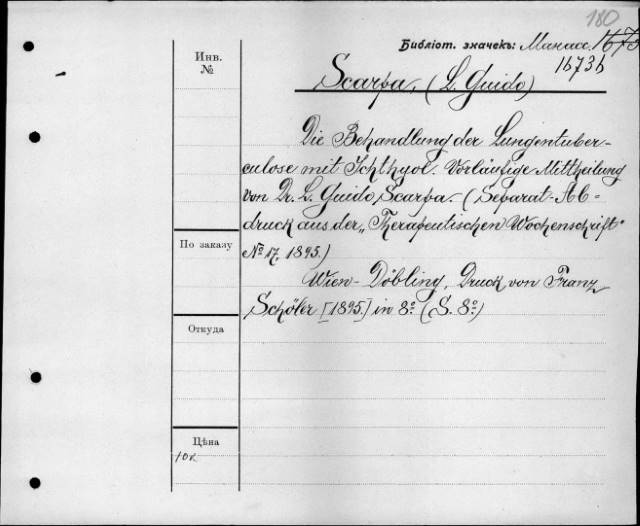 180
Библіот. значекъ: Манасс. 1673
1673b
Инв.
№
Scarpa, (L. Guido)
Die Behandlung der Lungentuber-
culose mit Ichthyol. Vorläufige Mittheilung
von Dr. L. Guido Scarpa. (Separat-Ab-
druck aus der „Therapeutischen Wochenschrift"
№ 17, 1895.)
По заказу
Wien-Döbling, Druck von Franz
Schöler [1895.] in 8° (S. 8°)
Откуда
Цѣна
10к